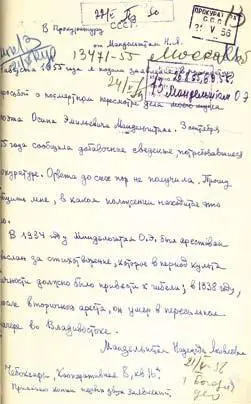 В Прокуратуру
СССР.
от Мандельштам Н.Я.
13471-55
августа 1955 года я подала заявление
просьбой о посмертном пересмотре дела моего мужа
поэта Осипа Эмильевича Мандельштама. 3 октября
55 года сообщила добавочные сведения, потребовавшиеся
прокуратуре. Ответа до сих пор не получила. Прошу
сообщить мне, в каком положении находится это
В 1934 году Мандельштам О.Э. был арестован
выслан за стихотворение, которое в период культа
личности должно было привести к гибели; в 1938 году,
после вторичного ареста, он умер в пересыльном
лагере во Владивостоке.
Мандельштам Надежда Яковлевна
Чебоксары, Кооперативная 8, кв 16.
Приложение: копии первых двух заявлений.